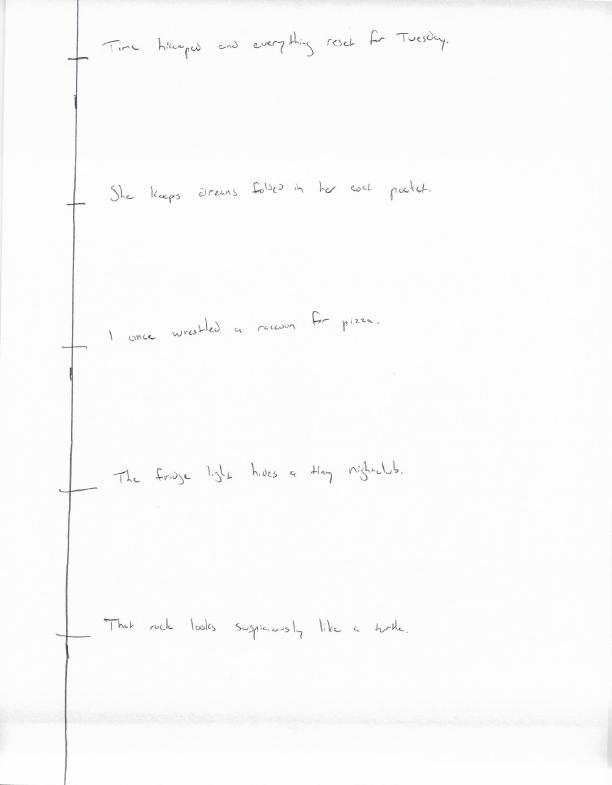 Time hiccuped and everything reset for Tuesday.
She keeps dreams folded in her coat pocket.
I once wrestled a raccoon for pizza.
The fridge light hides a tiny nightclub.
That rock looks suspiciously like a turtle.